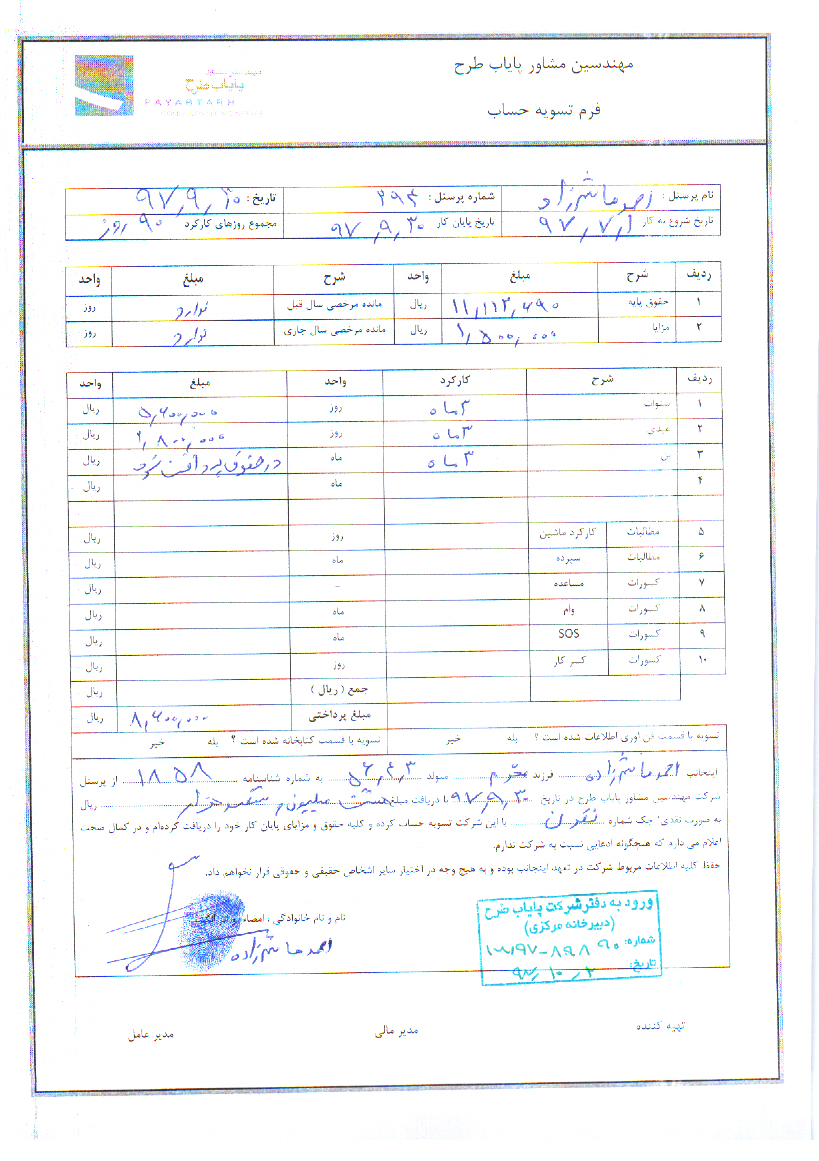 مهندسین مشاور پایاب طرح
فرم تسویه حساب
پایاب طرح
PAYABTARH
نام پرسنل : احمد هاشم‌زاده شماره پرسنل : ۲۹۴ تاریخ : ۹۷,۹,۳۰
تاریخ شروع به کار ۹۷,۷,۱ تاریخ پایان کار ۹۷,۹,۳۰ مجموع روزهای کارکرد ۹۰ روز
ردیف شرح مبلغ واحد شرح مبلغ واحد
۱ حقوق پایه ۱۱,۱۱۲,۶۹۰ ریال مانده مرخصی سال قبل ندارد روز
۲ مزایا ۱,۵۰۰,۰۰۰ ریال مانده مرخصی سال جاری ندارد روز
ردیف شرح کارکرد واحد مبلغ واحد
۱ سنوات ۳ماه روز ۵,۶۰۰,۰۰۰ ریال
۲ عیدی ۳ماه روز ۲,۸۰۰,۰۰۰ ریال
۳ بن ۳ماه ماه در حقوق پرداخت شود ریال
۴ ماه ریال
۵ مطالبات کارکرد ماشین روز ریال
۶ مطالبات سپرده ماه ریال
۷ کسورات مساعده - ریال
۸ کسورات وام ماه ریال
۹ کسورات SOS ماه ریال
۱۰ کسورات کسر کار روز ریال
جمع ( ریال ) ریال
مبلغ پرداختی ۸,۴۰۰,۰۰۰ ریال
تسویه با قسمت فن آوری اطلاعات شده است ؟ بله خیر تسویه با قسمت کتابخانه شده است ؟ بله خیر
اینجانب احمد هاشم‌زاده فرزند محرم متولد ۵۶,۴,۳ به شماره شناسنامه ۱۸۵۸ از پرسنل
شرکت مهندسین مشاور پایاب طرح در تاریخ ۹۷,۹,۳۰ با دریافت مبلغ هشت میلیون و ششصد هزار ریال
به صورت نقدی/ چک شماره با این شرکت تسویه حساب کرده و کلیه حقوق و مزایای پایان کار خود را دریافت کرده‌ام و در کمال صحت
اعلام می دارم که هیچگونه ادعایی نسبت به شرکت ندارم.
حفظ کلیه اطلاعات مربوط شرکت در تعهد اینجانب بوده و به هیچ وجه در اختیار سایر اشخاص حقیقی و حقوقی قرار نخواهم داد.
نام و نام خانوادگی ، امضاء و اثر انگشت
احمد هاشم‌زاده
ورود به دفتر شرکت پایاب طرح
(دبیرخانه مرکزی)
شماره:
تاریخ: ۹۷,۱۰,۲
تهیه کننده مدیر مالی مدیر عامل